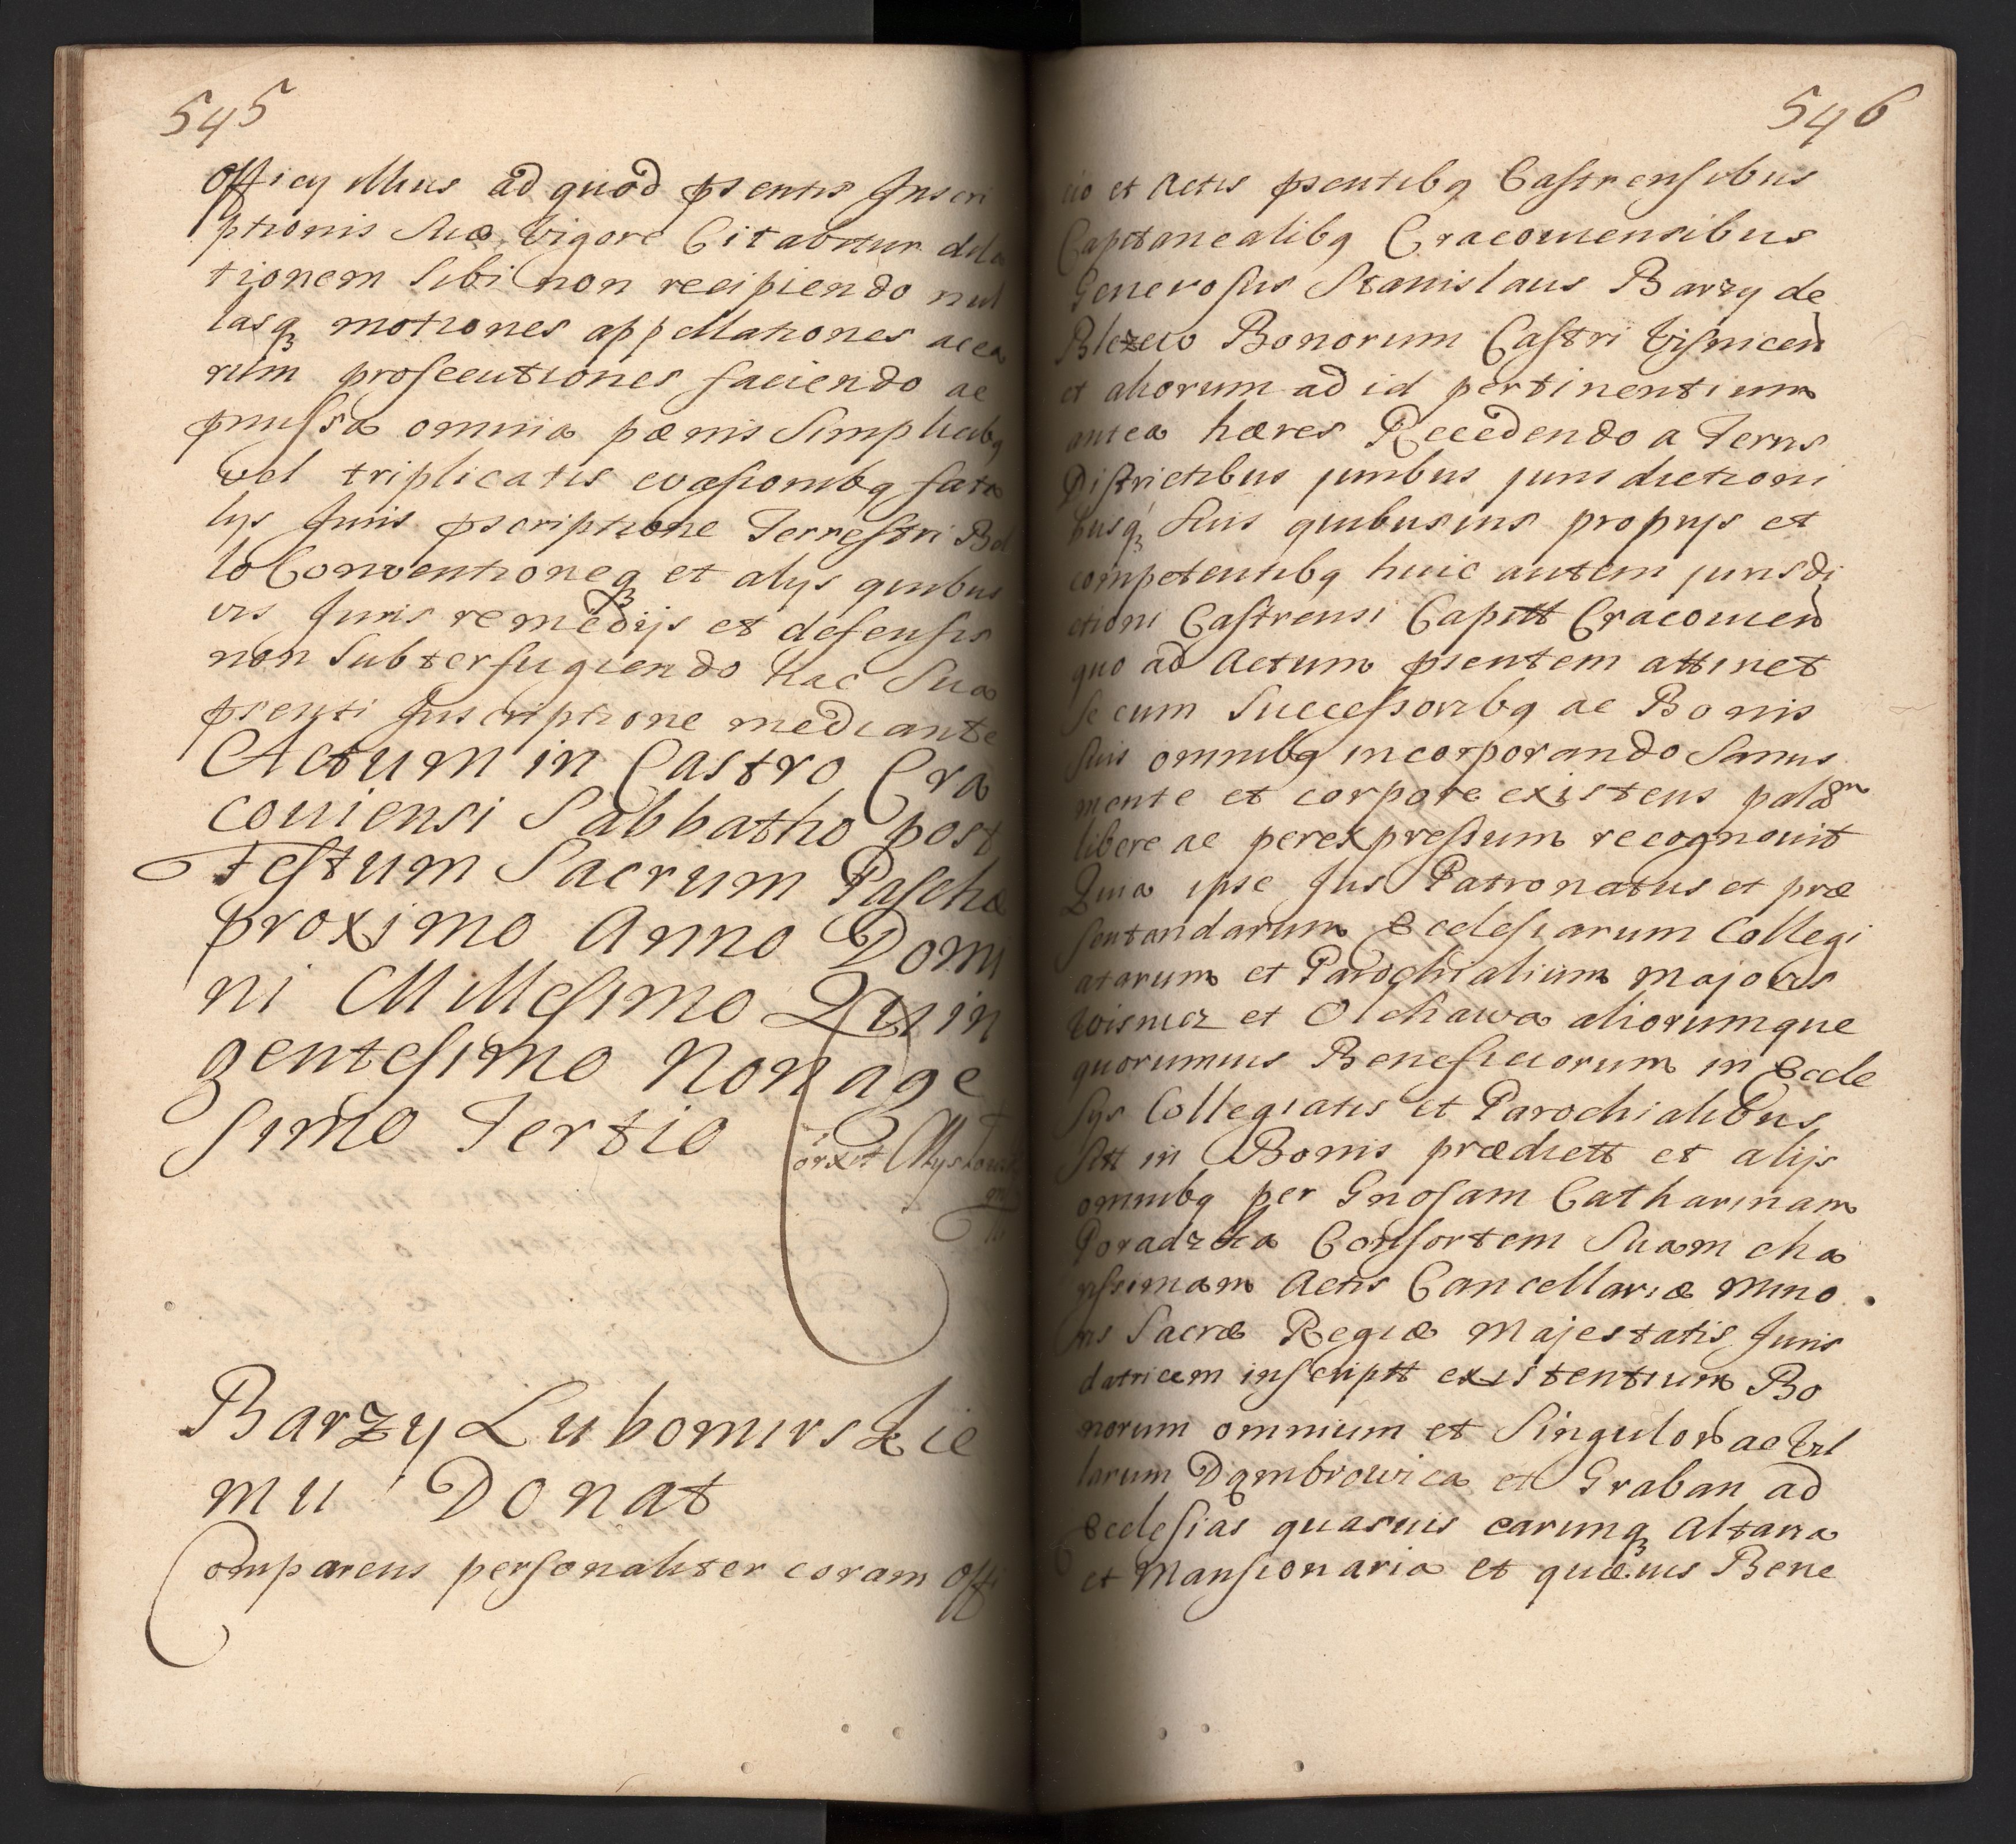 545
Officy illius ad quod psentis Inscri
ptionis suæ vigore Citabitur dila
tionem sibi non recipiendo nul
lasq motiones appellationes acea
rum prosecutiones faciendo ac
pmissa omnia pœnis simplicibq
vel triplicatis evasionibq fata
lys Juris pscriptione Terrestri Bel
lo Conventioneq et alys quibus
vis Juris remedijs et defensis
non subterfugiendo hac sua
psenti Inscriptione mediante
Actum in Castro Cra
coviensi Sabbatho post
Festum Sacrum Pascha
proximo Anno Domi
ni Millesimo Quin
gentesimo Nonage
simo Tertio
Barzy Lubomirskie
mu Donat
Comparens personaliter coram Offi
546
cio et Actis psentibq Castrensibus
Capitanealibq Cracoviensibus
Generosus Stanislaus Barzy de
Blozew Bonorum Castri Visnicen
et aliorum ad id pertinentium
antea hæres Recedendo a Terris
Districtibus juribus jurisdictioni
busq suis quibusvis proprys et
competentibq huic autem jurisdi
ctioni Castrensi Capitt Cracovien
quo ad Actum psentem attinet
se cum Successoribq ac Bonis
suis omnibq incorporando Sanus
mente et corpore existens palam
libere ac perexpressum recognovit
Quia ipse Jus Patronatus et præ
sentandarum Ecclesiarum Collegi
atarum et Parochialium majoris
Wisnicz et Olchawa aliorumque
quorumvis Beneficiorum in Eccle
sys Collegiatis et Parochialibus
sitt in Bonis prædictt et alijs
omnibq per Gnosam Catharinam
Poradzka Consortem suam cha
rissimam Actis Cancellariæ mino
ris Sacræ Regiæ Majestatis Juris
datricem inscriptt existentium Bo
norum omnium et singulor ac Vil
larum Dąmbrowica et Graban ad
Ecclesias quasvis earumq Altaria
et Mansionaria et quævis Bene